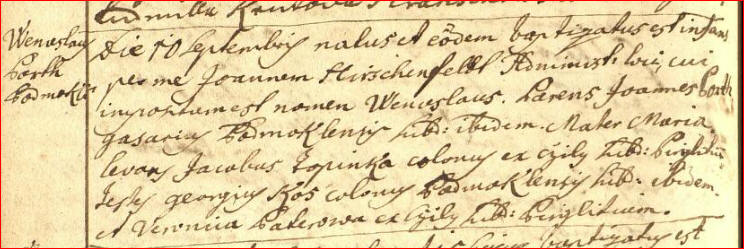 Wenceslaus
Porth
Podmoklis
Die 10 Septembris natus et eodem baptizatus est infans
per me Joannem Hirschenfeldt Administ: loci cui
impositum est nomen Wenceslaus. Parens Joannes Porth
gasarius Podmoklensis sub: ibidem. Mater Maria.
levans Jacobus Topinka colonus ex sub:
Testes Georgius Kos colonus Podmoklensis sub: ibidem.
et Veronica Paterowa ex sub:
baptizatus est